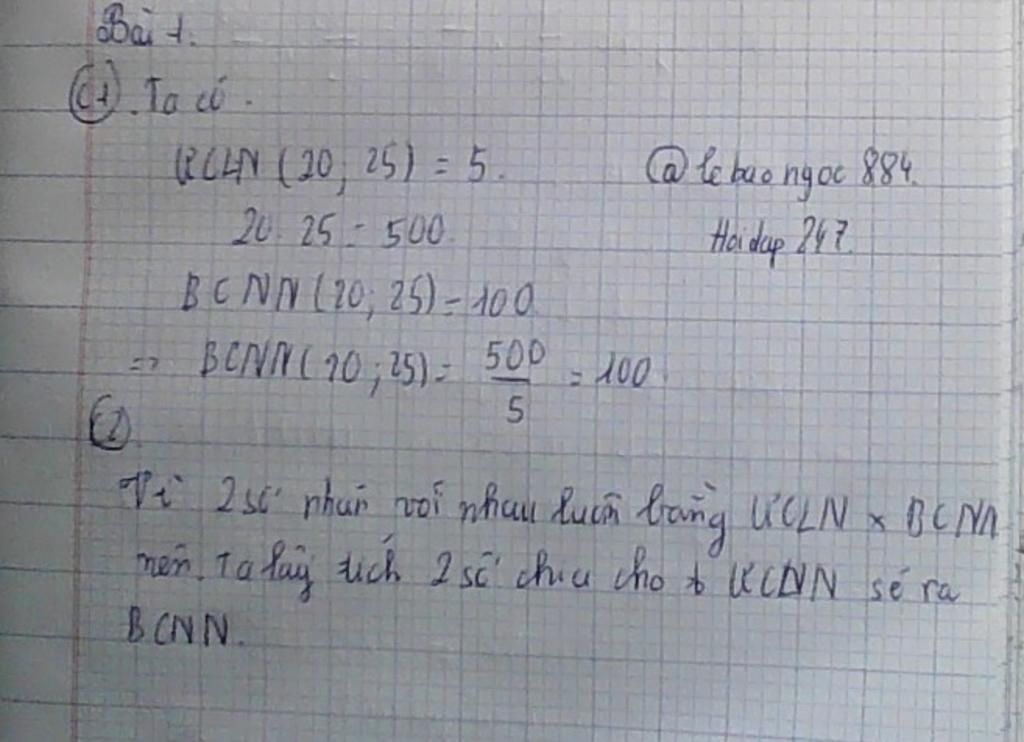 Bài 1.
(1). Ta có.
ƯCLN (20; 25) = 5.
@lebaongoc884.
20. 25 = 500.
Hoidap 247.
BCNN (20; 25) = 100
=> BCNN (20; 25) = 500/5 = 100.
(2)
Vì 2 số nhân với nhau luôn bằng ƯCLN x BCNN
nên. Ta lấy tích 2 số chia cho ƯCNN sẽ ra
BCNN.